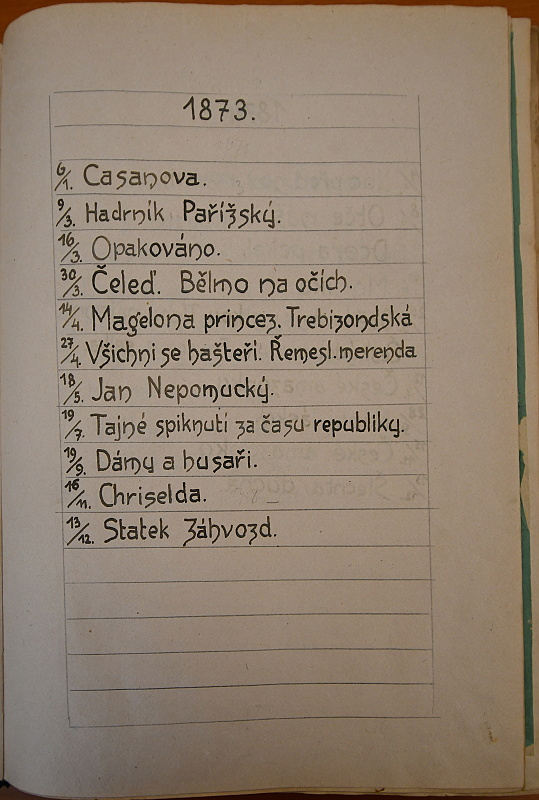 1873.
6/1. Casanova.
9/3. Hadrník Pařížský.
16/3. Opakováno.
30/3. Čeleď. Bělmo na očích.
14/4. Magelona princez. Trebizondská
27/4. Všichni se hašteří. Řemesl. merenda
18/5. Jan Nepomucký.
19/7. Tajné spiknutí za času republiky.
19/9. Dámy a husaři.
16/11. Chriselda.
13/12. Statek Záhvozd.